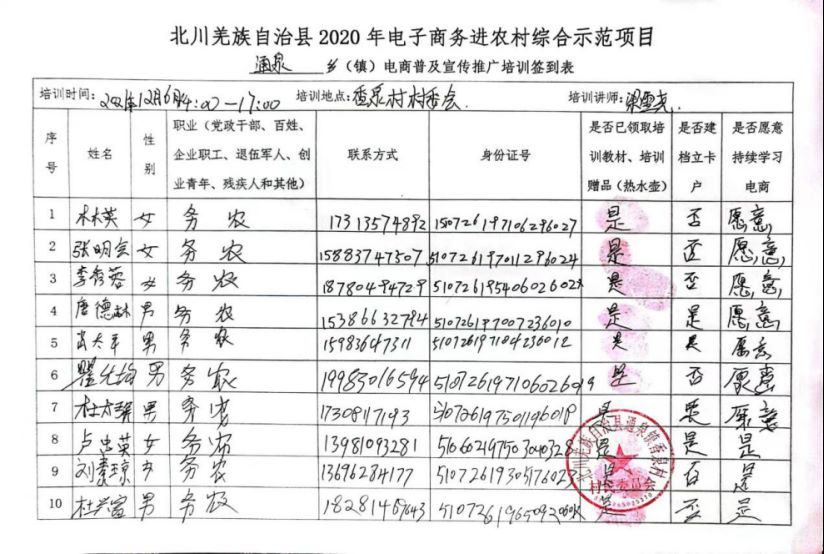 北川羌族自治县 2020 年电子商务进农村综合示范项目
通泉 乡（镇）电商普及宣传推广培训签到表
培训时间：2021年12月6日14:00—17:00 培训地点：香泉村村委会 培训讲师：
序号 姓名 性别 职业（党政干部、百姓、企业职工、退伍军人、创业青年、残疾人和其他） 联系方式 身份证号 是否已领取培训教材、培训赠品（热水壶） 是否建档立卡户 是否愿意持续学习电商
1 林英 女 务农 17313574892 是 否 愿意
2 张明会 女 务农 15883747507 510726197011296024 是 否 愿意
3 李秀蓉 女 务农 18780494729 51072619540602602X 是 否 愿意
4 唐德林 男 务农 15386632794 510726197007236010 是 是 愿意
5 男 务农 15983647311 510726197104236012 是 是 愿意
6 男 务农 19983016594 510726197106026019 是 否 愿意
7 男 务 17308117193 510726197501196018 是 愿意
8 卢忠英 女 务农 13981093281 是 是 是
9 刘素琼 女 务农 13696284177 是 否 是
10 男 务农 是 否 是
北川羌族自治县通泉镇香泉村
村民委员会